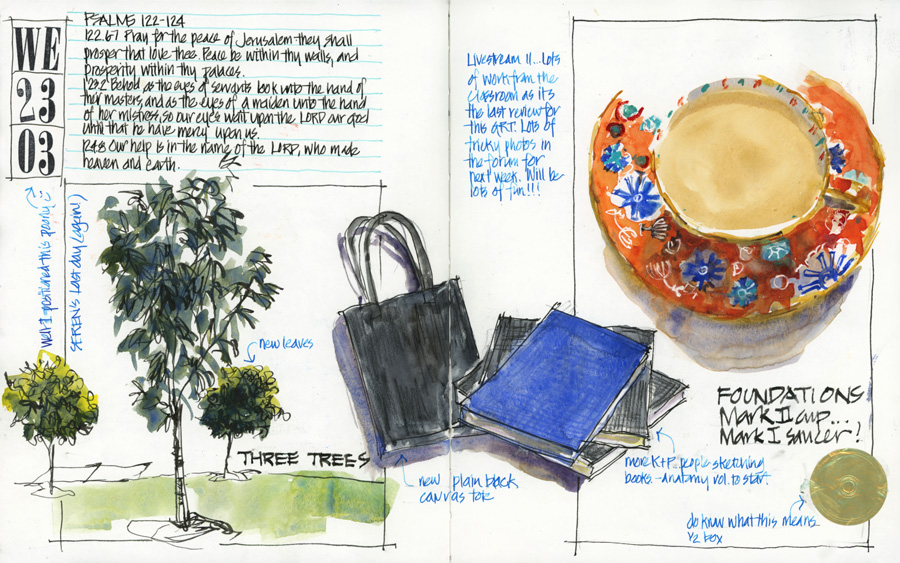 WE
23
03
PSALMS 122-124
122.6-7 Pray for the peace of Jerusalem they shall
prosper that love thee. Peace be within thy walls, and
prosperity within thy palaces.
123:2 Behold as the eyes of servants look unto the hand of
their masters, and as the eyes of a maiden unto the hand
of her mistress, so our eyes wait upon the LORD our God
until that he have mercy upon us.
124:8 Our help is in the name of the LORD, who made
heaven and earth.
Well I positioned this poorly
SEREN'S last day (again!)
new leaves
THREE TREES
new plain black
canvas tote
Livestream 11...lots
of work from the
classroom as its
the last review for
this QRT. Lots of
tricky photos in
the forum for
next week. Will be
lots of fun!!!
FOUNDATIONS
Mark II cup...
Mark I saucer!
more K+P people sketching
books - anatomy vol. to start.
do know what this means
1/2 box